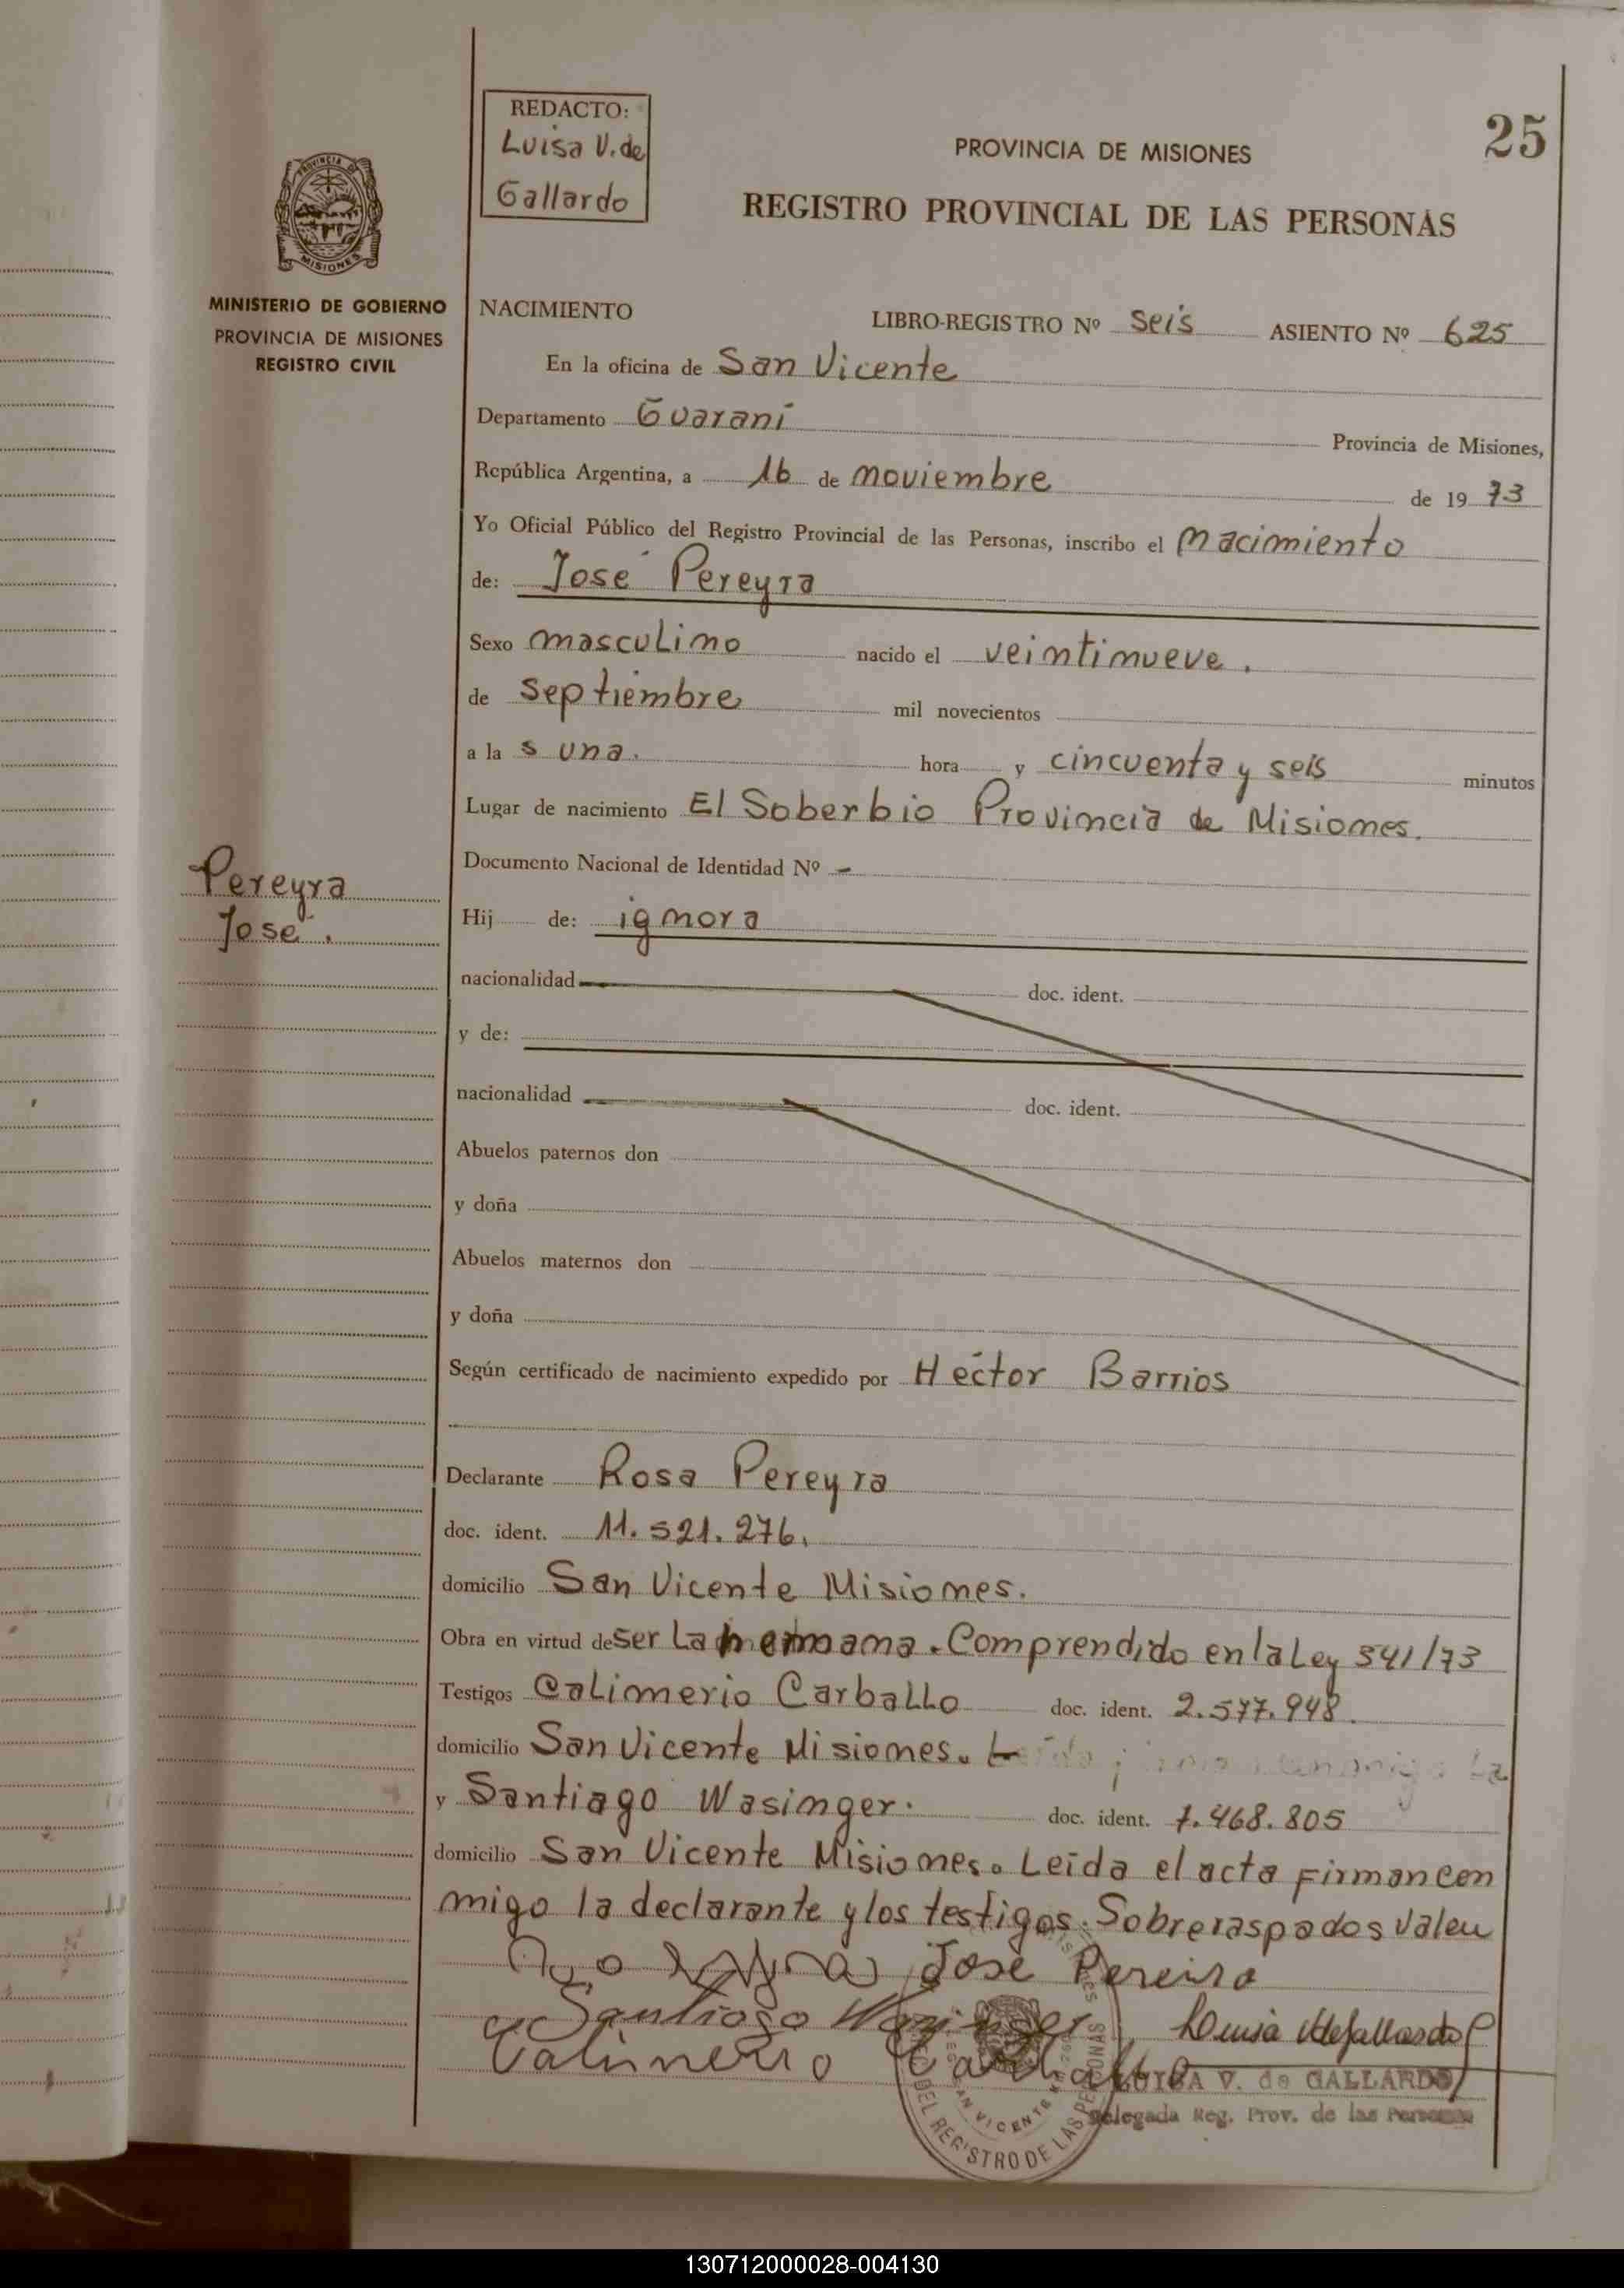 REDACTO:
Luisa V. de
Gallardo
25
PROVINCIA DE MISIONES
REGISTRO PROVINCIAL DE LAS PERSONAS
PROVINCIA DE
MISIONES
MINISTERIO DE GOBIERNO
PROVINCIA DE MISIONES
REGISTRO CIVIL
NACIMIENTO
LIBRO-REGISTRO Nº seis ASIENTO Nº 625
En la oficina de San Vicente
Departamento Guaraní Provincia de Misiones,
República Argentina, a 16 de noviembre de 19 73
Yo Oficial Público del Registro Provincial de las Personas, inscribo el nacimiento
de: José Pereyra
Sexo masculino nacido el veintinueve.
de septiembre mil novecientos
a la s una. hora y cincuenta y seis minutos
Lugar de nacimiento El Soberbio Provincia de Misiones.
Documento Nacional de Identidad Nº -
Pereyra
José.
Hij de: ignora
nacionalidad doc. ident.
y de:
nacionalidad doc. ident.
Abuelos paternos don
y doña
Abuelos maternos don
y doña
Según certificado de nacimiento expedido por Hector Barrios
Declarante Rosa Pereyra
doc. ident. 11.521.276.
domicilio San Vicente Misiones.
Obra en virtud de ser la hermana. Comprendido en la Ley 541/73
Testigos Calimerio Carballo doc. ident. 2.577.948.
domicilio San Vicente Misiones. La
y Santiago Wasinger. doc. ident. 7.468.805
domicilio San Vicente Misiones. Leída el acta firman con
migo la declarante y los testigos. Sobreraspados Valen
José Pereira
Santiago
Calimerio Carballo
LUISA V. de GALLARDO
Delegada Reg. Prov. de las Personas
DEL REGISTRO DE LAS PERSONAS
SAN VICENTE
130712000028-004130